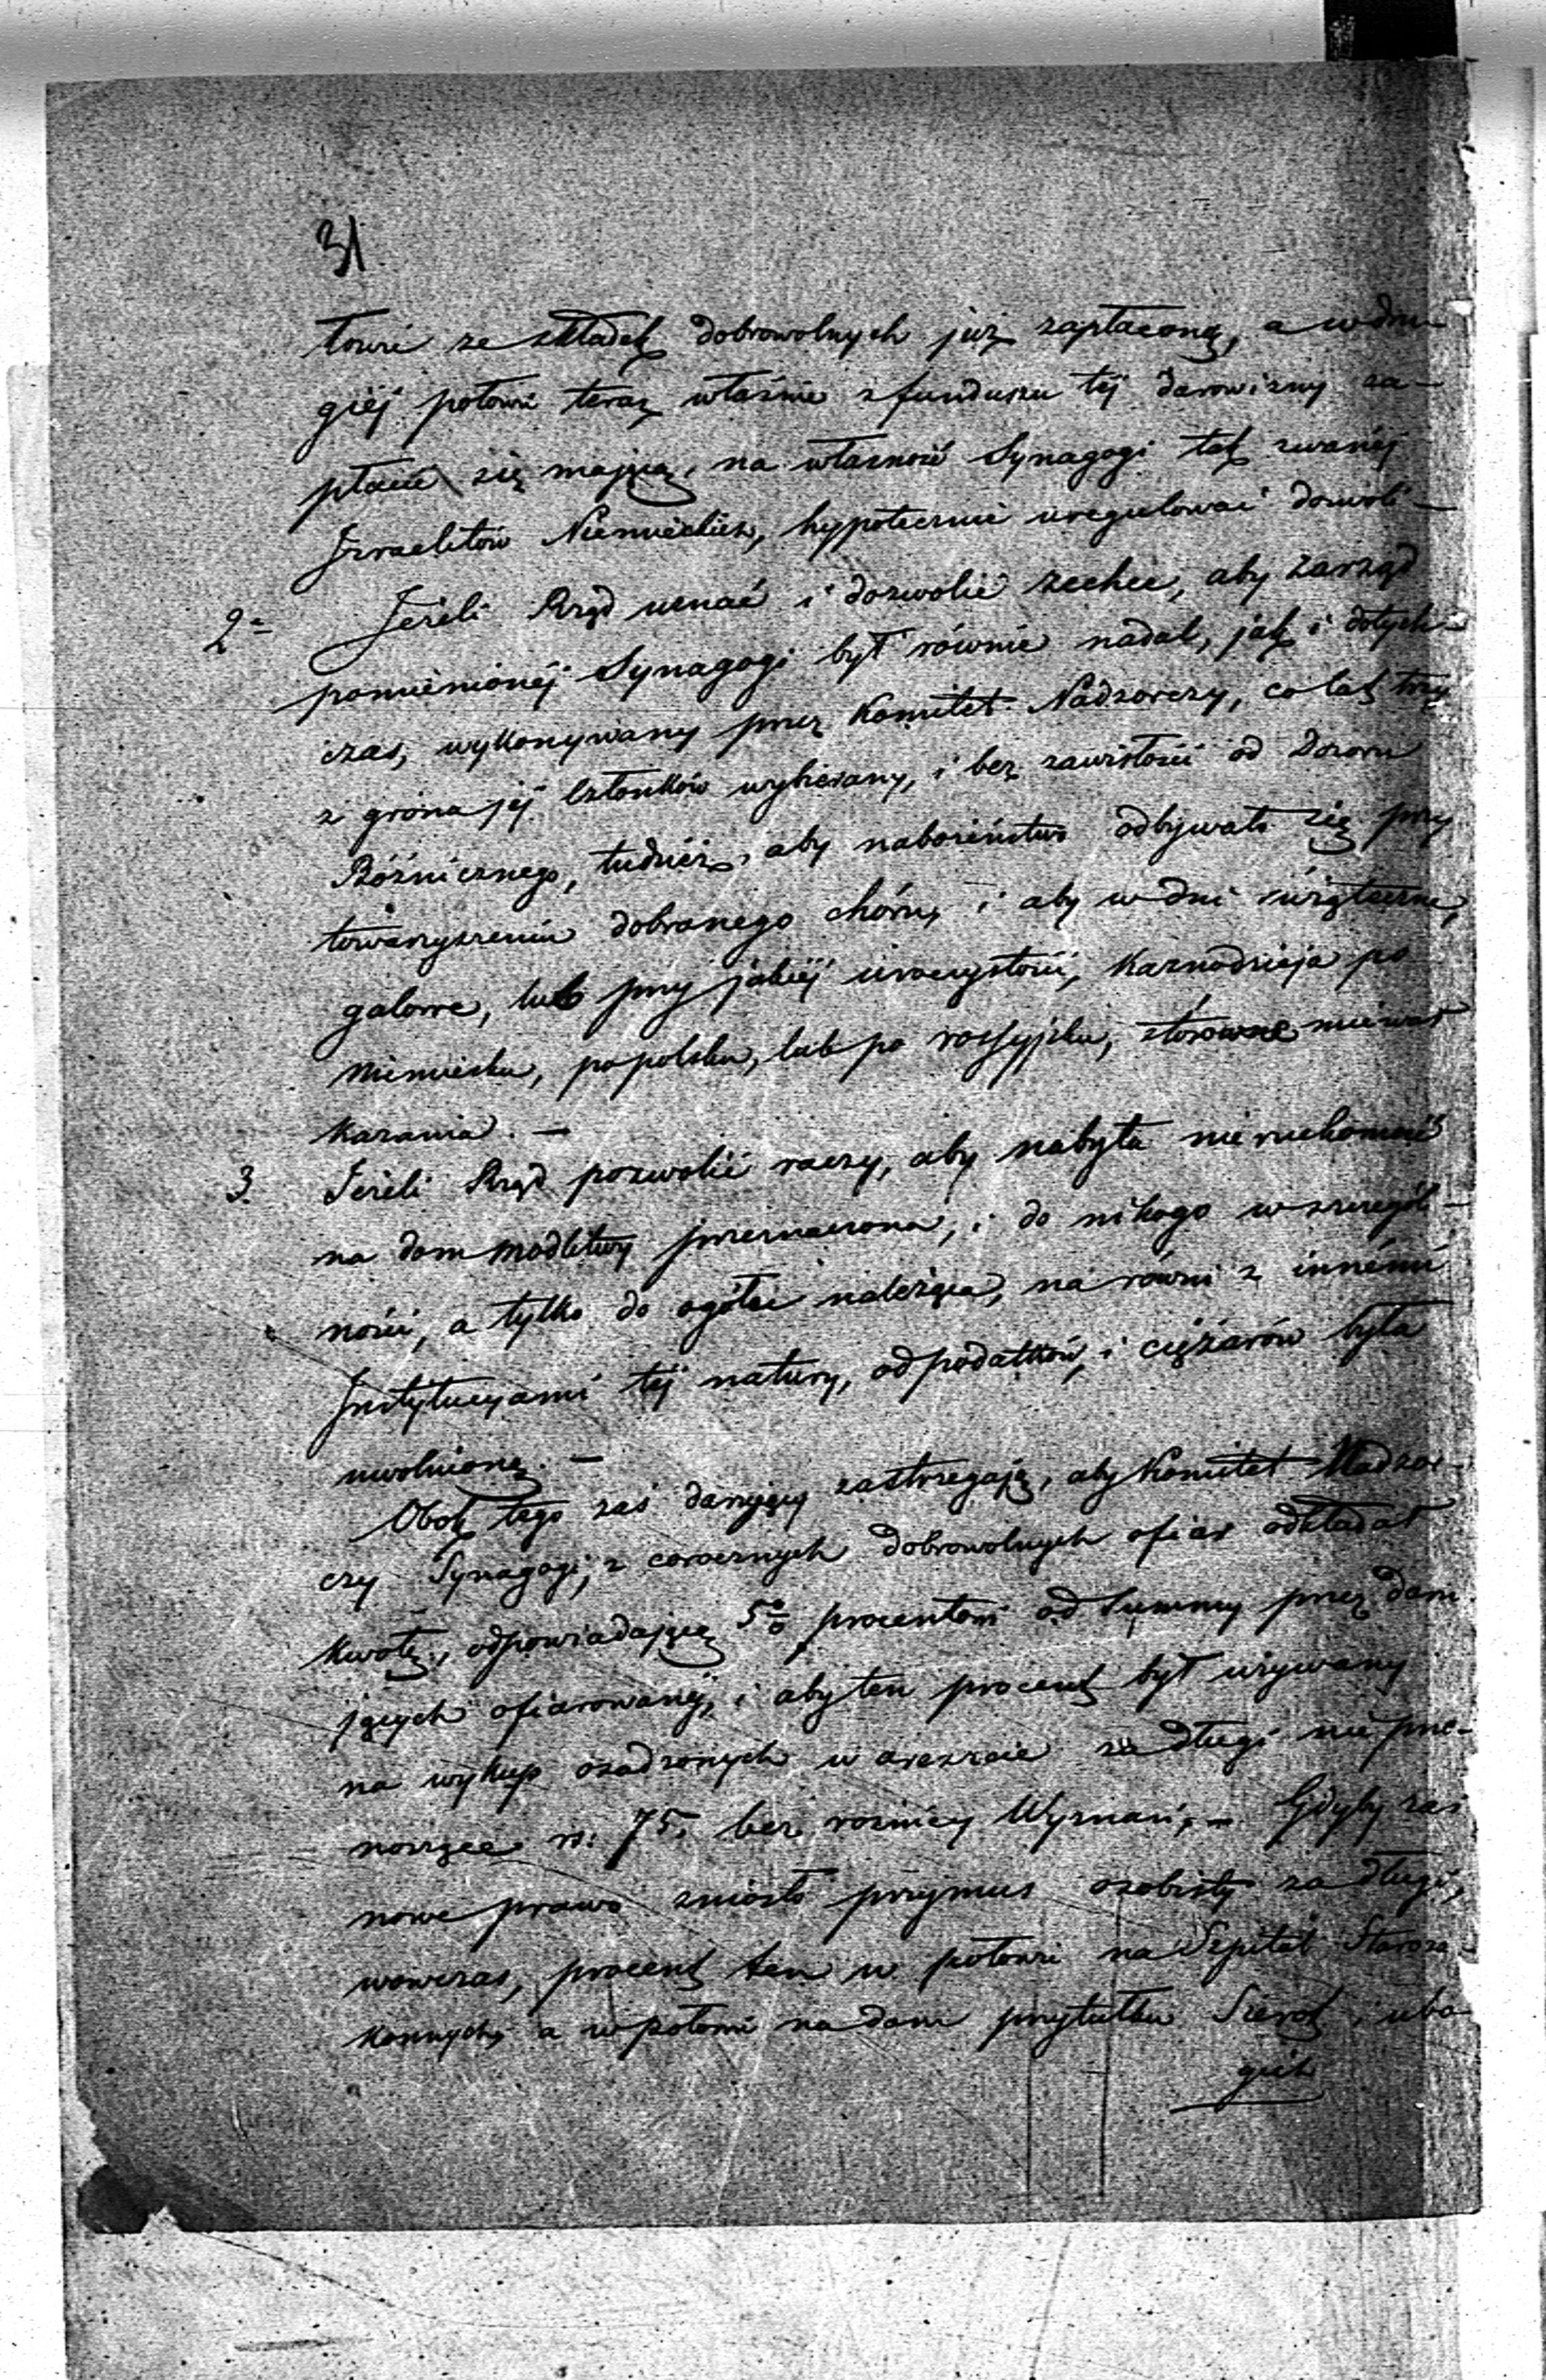 31.
łowie ze składek dobrowolnych już zapłaconą, a w dru-
giéj połowie teraz właśnie z funduszu téj darowizny za-
płacić się mającą, na własność Synagogi tak zwanéj
Izraelitów Niemieckich, hypotecznie uregulować dozwoli-
2= Jeżeli Rząd uznać i dozwolić zechce, aby zarząd
pomienionéj Synagogi był równie nadal, jak i dotych-
czas, wykonywany przez Komitet Nadzorczy, co lat trzy
z grona jéj Członków wybierany, i bez zawisłości od Dozoru
Bóżnicznego, tudzież, aby nabożeństwo odbywało się przy
towarzyszeniu dobranego chóru, i aby w dni świąteczne,
galowe, lub przy jakiéj uroczystości, Kaznodzieja po
niemiecku, po polsku, lub po rossyjsku, stosowne miewał
kazania. —
3. Jeżeli Rząd pozwolić raczy, aby nabyta nieruchomość
na dom modlitwy przeznaczona, i do nikogo w szczegól-
ności, a tylko do ogółu należąca, na równi z innémi
Instytucyami téj natury, od podatków i ciężarów była
uwolnioną. —
Obok tego zaś darujący zastrzegają, aby Komitet Nadzor-
czy Synagogi, z corocznych dobrowolnych ofiar odkładał
kwotę, odpowiadającą 5% procentowi od Summy przez daru-
jących ofiarowanéj, i aby ten procent był używany
na wykup osadzonych w areszcie za długi nie prze-
noszące rs: 75, bez różnicy Wyznań, — Gdyby zaś
nowe prawo zniosło przymus osobisty za długi,
wówczas, procent ten w połowie na Szpital Staroza-
konnych, a w połowie na dom przytułku Sierot i ubo-
gich